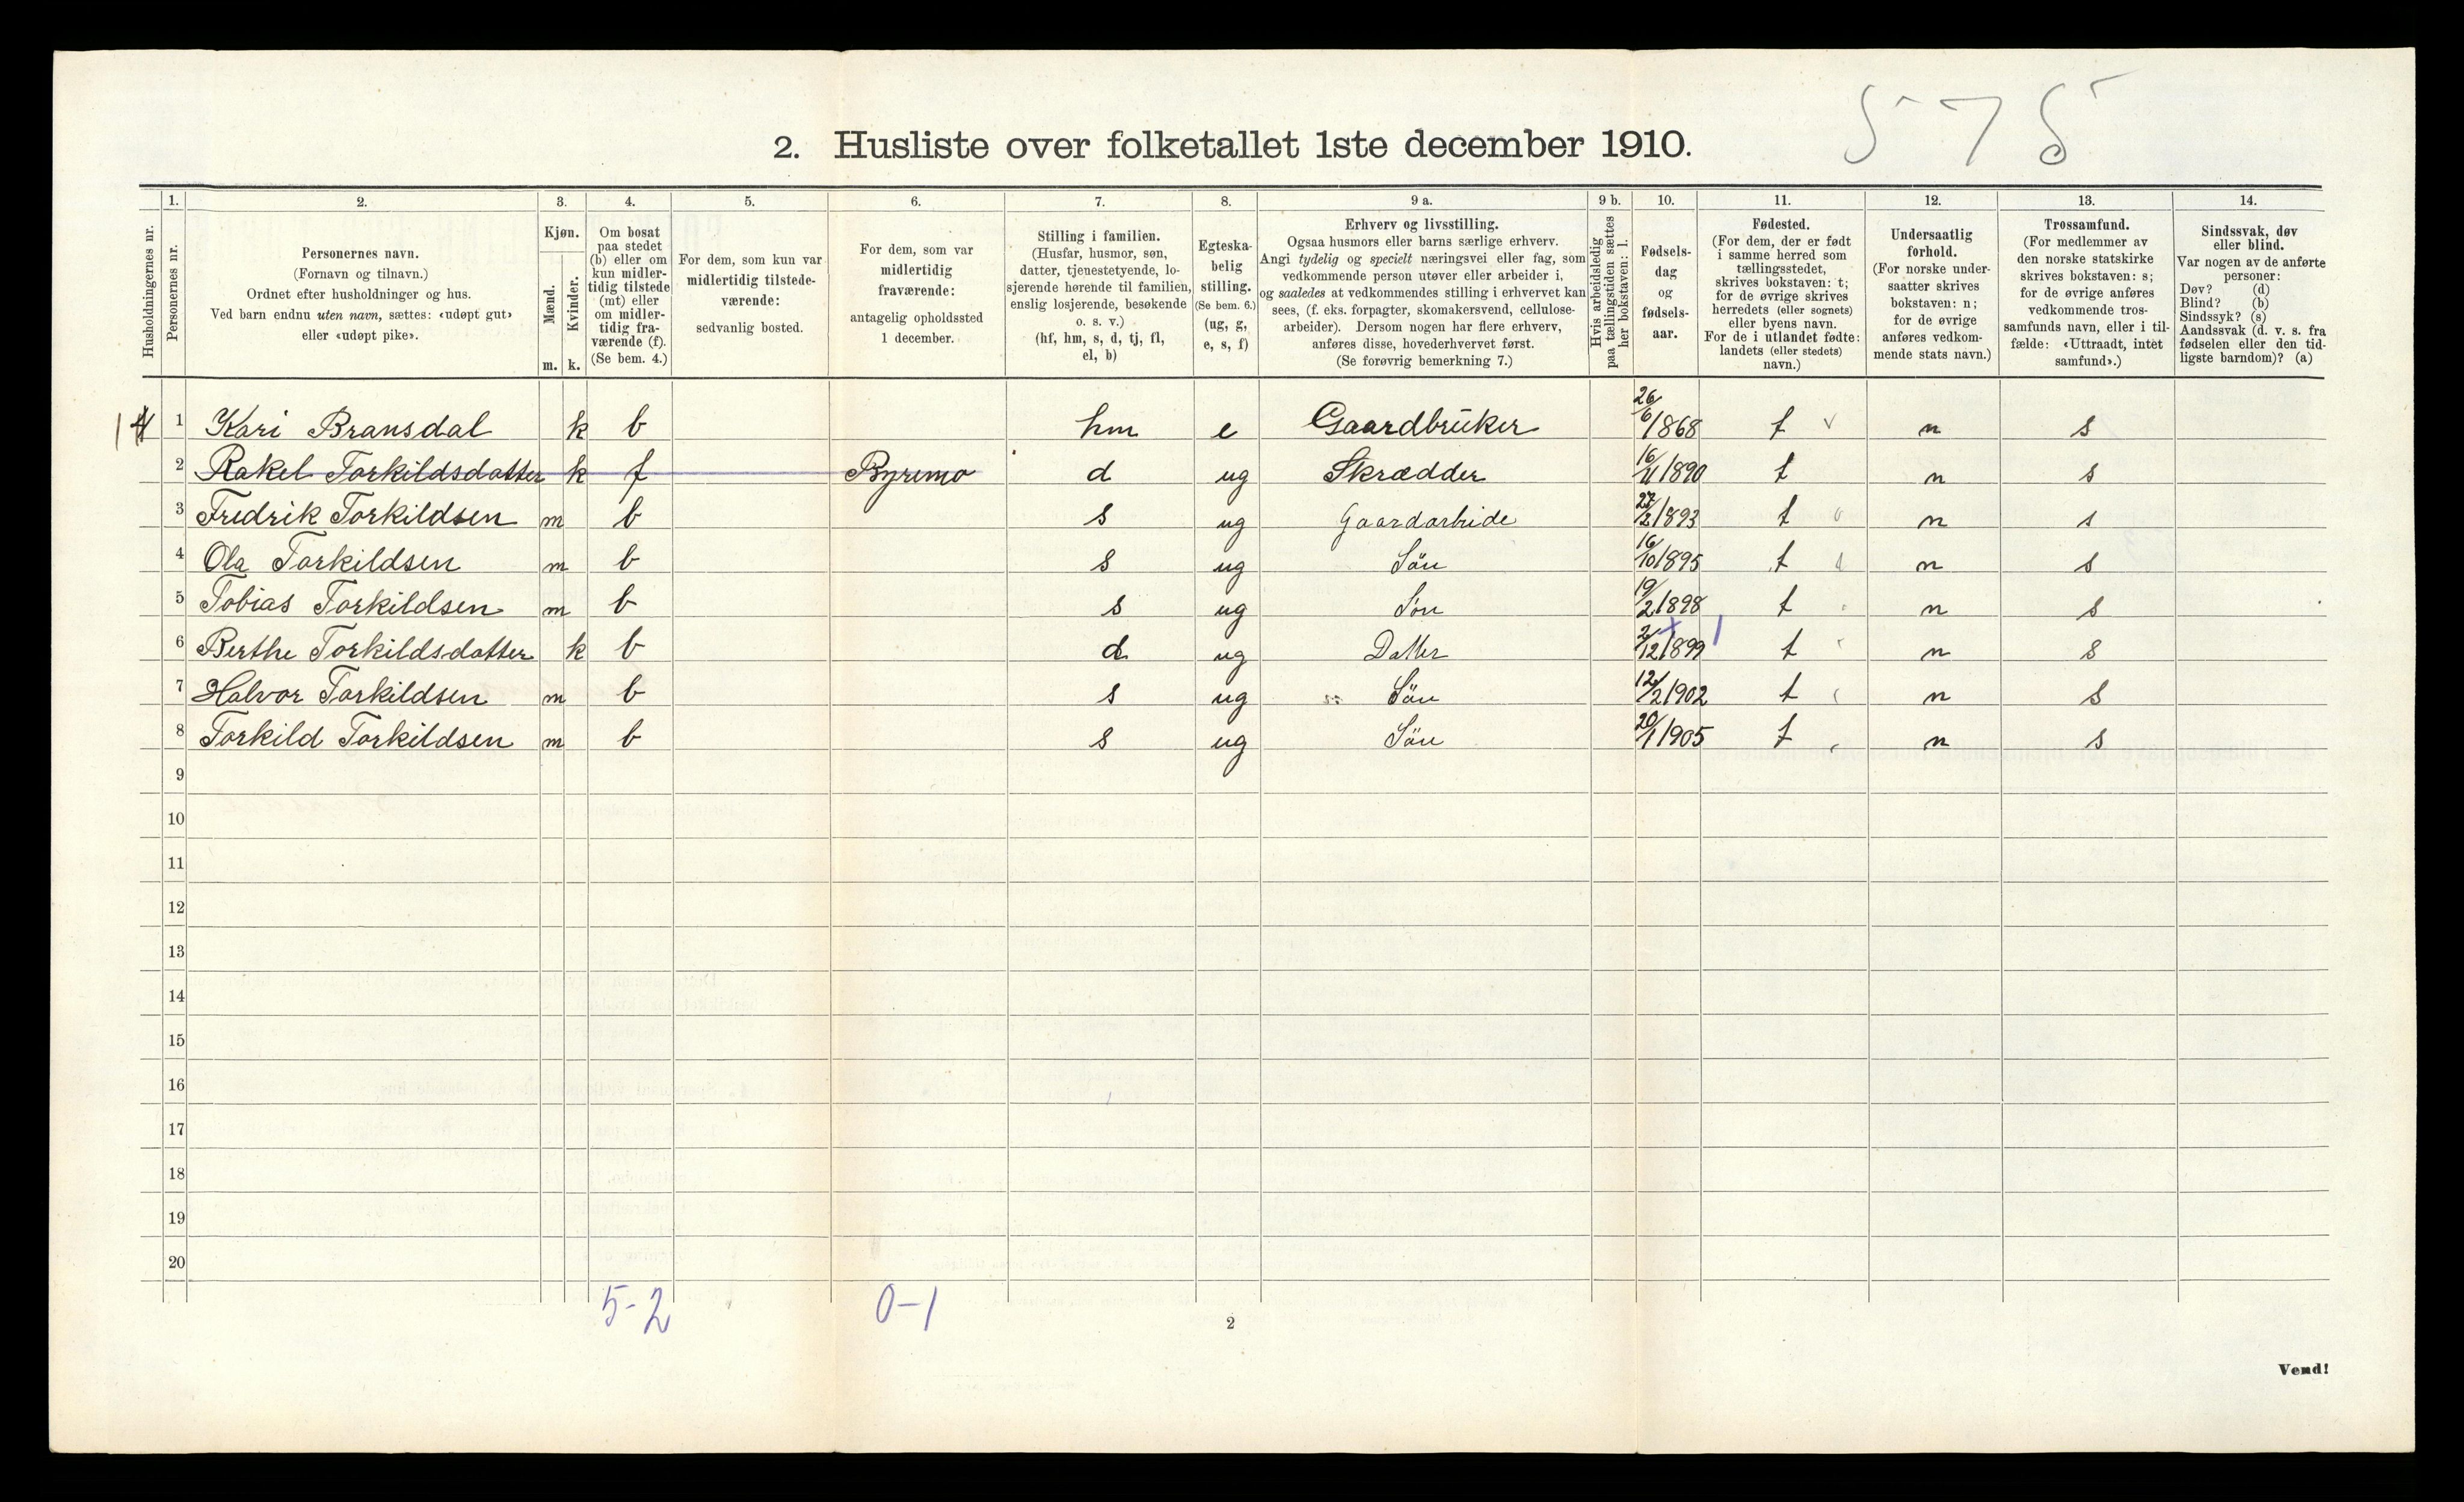 575
2. Husliste over folketallet 1ste december 1910.
Husholdningernes nr.
1. Personernes nr.
2. Personernes navn.
(Fornavn og tilnavn.)
Ordnet efter husholdninger og hus.
Ved barn endnu uten navn, sættes: «udøpt gut»
eller «udøpt pike».
3. Kjøn.
Mænd. m.
Kvinder. k.
4. Om bosat
paa stedet
(b) eller om
kun midler-
tidig tilstede
(mt) eller
om midler-
tidig fra-
værende (f).
(Se bem. 4.)
5. For dem, som kun var
midlertidig tilstede-
værende:
sedvanlig bosted.
6. For dem, som var
midlertidig
fraværende:
antagelig opholdssted
1 december.
7. Stilling i familien.
(Husfar, husmor, søn,
datter, tjenestetyende, lo-
sjerende hørende til familien,
enslig losjerende, besøkende
o. s. v.)
(hf, hm, s, d, tj, fl,
el, b)
8. Egteska-
belig
stilling.
(Se bem. 6.)
(ug, g,
e, s, f)
9 a. Erhverv og livsstilling.
Ogsaa husmors eller barns særlige erhverv.
Angi tydelig og specielt næringsvei eller fag, som
vedkommende person utøver eller arbeider i,
og saaledes at vedkommendes stilling i erhvervet kan
sees, (f. eks. forpagter, skomakersvend, cellulose-
arbeider). Dersom nogen har flere erhverv,
anføres disse, hovederhvervet først.
(Se forøvrig bemerkning 7.)
9 b. Hvis arbeidsledig
paa tællingstiden sættes
her bokstaven: l.
10. Fødsels-
dag
og
fødsels-
aar.
11. Fødested.
(For dem, der er født
i samme herred som
tællingsstedet,
skrives bokstaven: t;
for de øvrige skrives
herredets (eller sognets)
eller byens navn.
For de i utlandet fødte:
landets (eller stedets)
navn.)
12. Undersaatlig
forhold.
(For norske under-
saatter skrives
bokstaven: n;
for de øvrige
anføres vedkom-
mende stats navn.)
13. Trossamfund.
(For medlemmer av
den norske statskirke
skrives bokstaven: s;
for de øvrige anføres
vedkommende tros-
samfunds navn, eller i til-
fælde: «Uttraadt, intet
samfund».)
14. Sindssvak, døv
eller blind.
Var nogen av de anførte
personer:
Døv? (d)
Blind? (b)
Sindssyk? (s)
Aandssvak (d. v. s. fra
fødselen eller den tid-
ligste barndom)? (a)
1 Kari Bransdal k b hm e Gaardbruker 26/6/1868 t n s
2 Rakel Torkildsdatter k f Byremo d ug Skrædder 16/11/1890 t n s
3 Fredrik Torkildsen m b s ug Gaardarbeide 27/2/1893 t n s
4 Ola Torkildsen m b s ug Søn 16/10/1895 t n s
5 Tobias Torkildsen m b s ug Søn 19/2/1898 t n s
6 Berthe Torkildsdatter k b d ug Datter 2/12/1899 t n s
7 Halvor Torkildsen m b s ug Søn 12/2/1902 t n s
8 Torkild Torkildsen m b s ug Søn 20/1/1905 t n s
9
10
11
12
13
14
15
16
17
18
19
20
5-2 0-1
2
Vend!